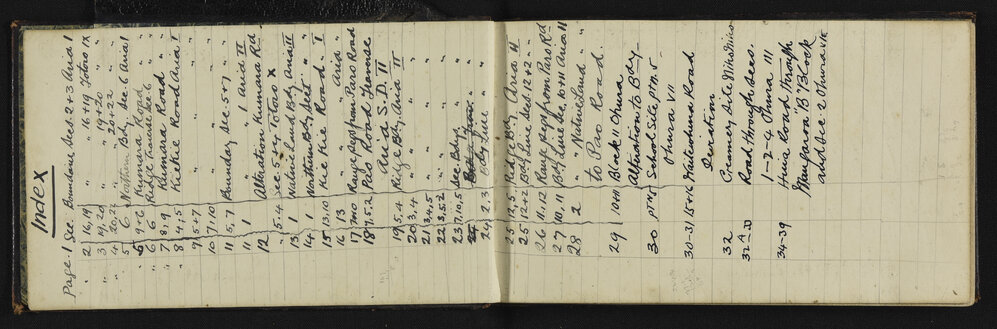 Index
Page. 1 See. Boundarie Secs. 2 + 3 Aria 1
" 2 16, 19, " " 16 + 19 Totoro IX
" 3 19, 20 " " 19 + 20 "
" 4 20, 22 " " 20 + 22 "
" 5 6 Northern Bdy Sec 6 Aria 1
6 9 + 6 Kumara Road
6 6 Ridge Traverse Sec 6
7 8, 9 Kumara Road
8 4, 5 Kiekie Road Aria I
9 5 + 7 " " "
10 7, 10 " " "
11 5, 7 Boundary Sec. 5 + 7 "
11 1 " 1 Aria II
12 Alteration Kumara Rd
5, 4 Sec 5, 4 Totoro X
13 1 Native Land Bdy Aria II
14 1 Northern Bdy Sec 1 "
15 13, 10 Kie Kie Road. I
16 13 " " Aria "
17 Range Bdy from Paro Road
18 9, 5, 2 Pao Road Traverse
Aria S.D. II
19 5, 4 Ridge Bdy, Aria II
20 3, 4 " " "
21 3, 4, 5 " " "
22 3, 5, 2 " " "
23 7, 10, 5 Sec Bdy "
24
24 2, 3 Bdy Line "
25 12, 5 Ridge Bdy Aria II
25 12 + 2 Bdy Line Sec 12 + 2 "
26 11, 12 Range Bdy from Paro Rd
27 10, 11 Bdy Line Sec. 10 + 11 Aria II
28 2 " Native Land "
to Pao Road
29 10 + 11 Block II Ohura
Alteration to Bdy
30 pt M 5 School Site, pt M. 5
Ohura VII
30-31 15 + 16 Waitewhena Road
Deviation
32 Creamery Site
32A-33 Road through Secs.
1-2-4 Ohura III
34-39 Huia Road through
"B" Block
and Sec 2 Ohura VII